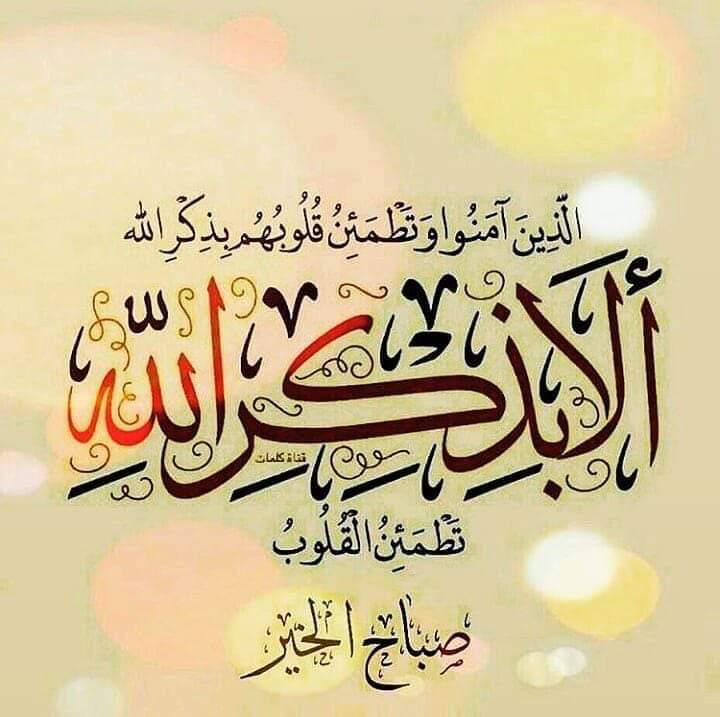 الَّذِينَ آمَنُوا وَتَطْمَئِنُ قُلُوبُهُم بِذِكْرِ الله
ألَا بِذِكِرِ اللَّهِ
قناة كلمات
تَطْمَئِنُ الْقُلُوبُ
صباح الخير